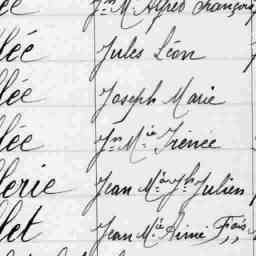 ée Jn M. Alfred François
lée Jules Léon
lée Joseph Marie
lée Jn Mie Irénée
lerie Jean Mie Jh Julien
let Jean Mie Aimé Fçois